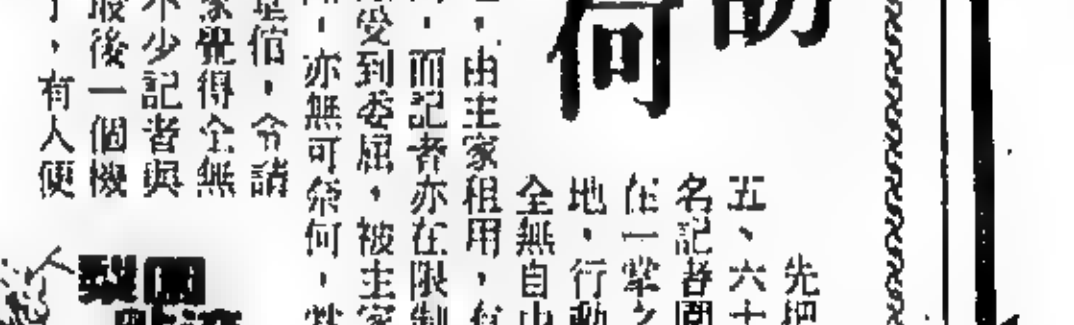 訪
何
先把
五、六十
名記者圍
在一掌之
地，行動
全無自由
，由主家租用，有
，而記者亦在限制
受到委屈，被主家
，亦無可奈何，
信，令諸
覺得全無
不少記者與
最後一個機
，有人便